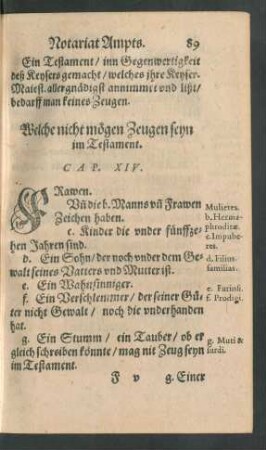 Notariat Ampts. 89
Ein Testament / inn Gegenwertigkeit
deß Keysers gemacht / welches ihre Keyser-
Maiest. allergnädigst annimmet und lißt /
bedarff man keines Zeugen.
Welche nicht mögen Zeugen seyn
im Testament.
CAP. XIV.
FRawen.
Vñ die b. Manns vñ Frawen
Zeichen haben.
c. Kinder die vnder fünffze-
hen Jahren sind.
d. Ein Sohn / der noch vnder dem Ge-
walt seines Vatters vnd Mutter ist.
e. Ein Wahnsinniger.
f. Ein Verschlemmer / der seiner Gü-
ter nicht Gewalt / noch die vnderhanden
hat.
g. Ein Stumm / ein Tauber / ob er
gleich schreiben könnte / mag nit Zeug seyn
im Testament.
F v g. Einer
Mulieres.
b. Herma-
phroditæ.
c. Impube-
res.
d. Filius-
familias.
e. Furiosi.
f. Prodigi.
g. Muti &
surdi.